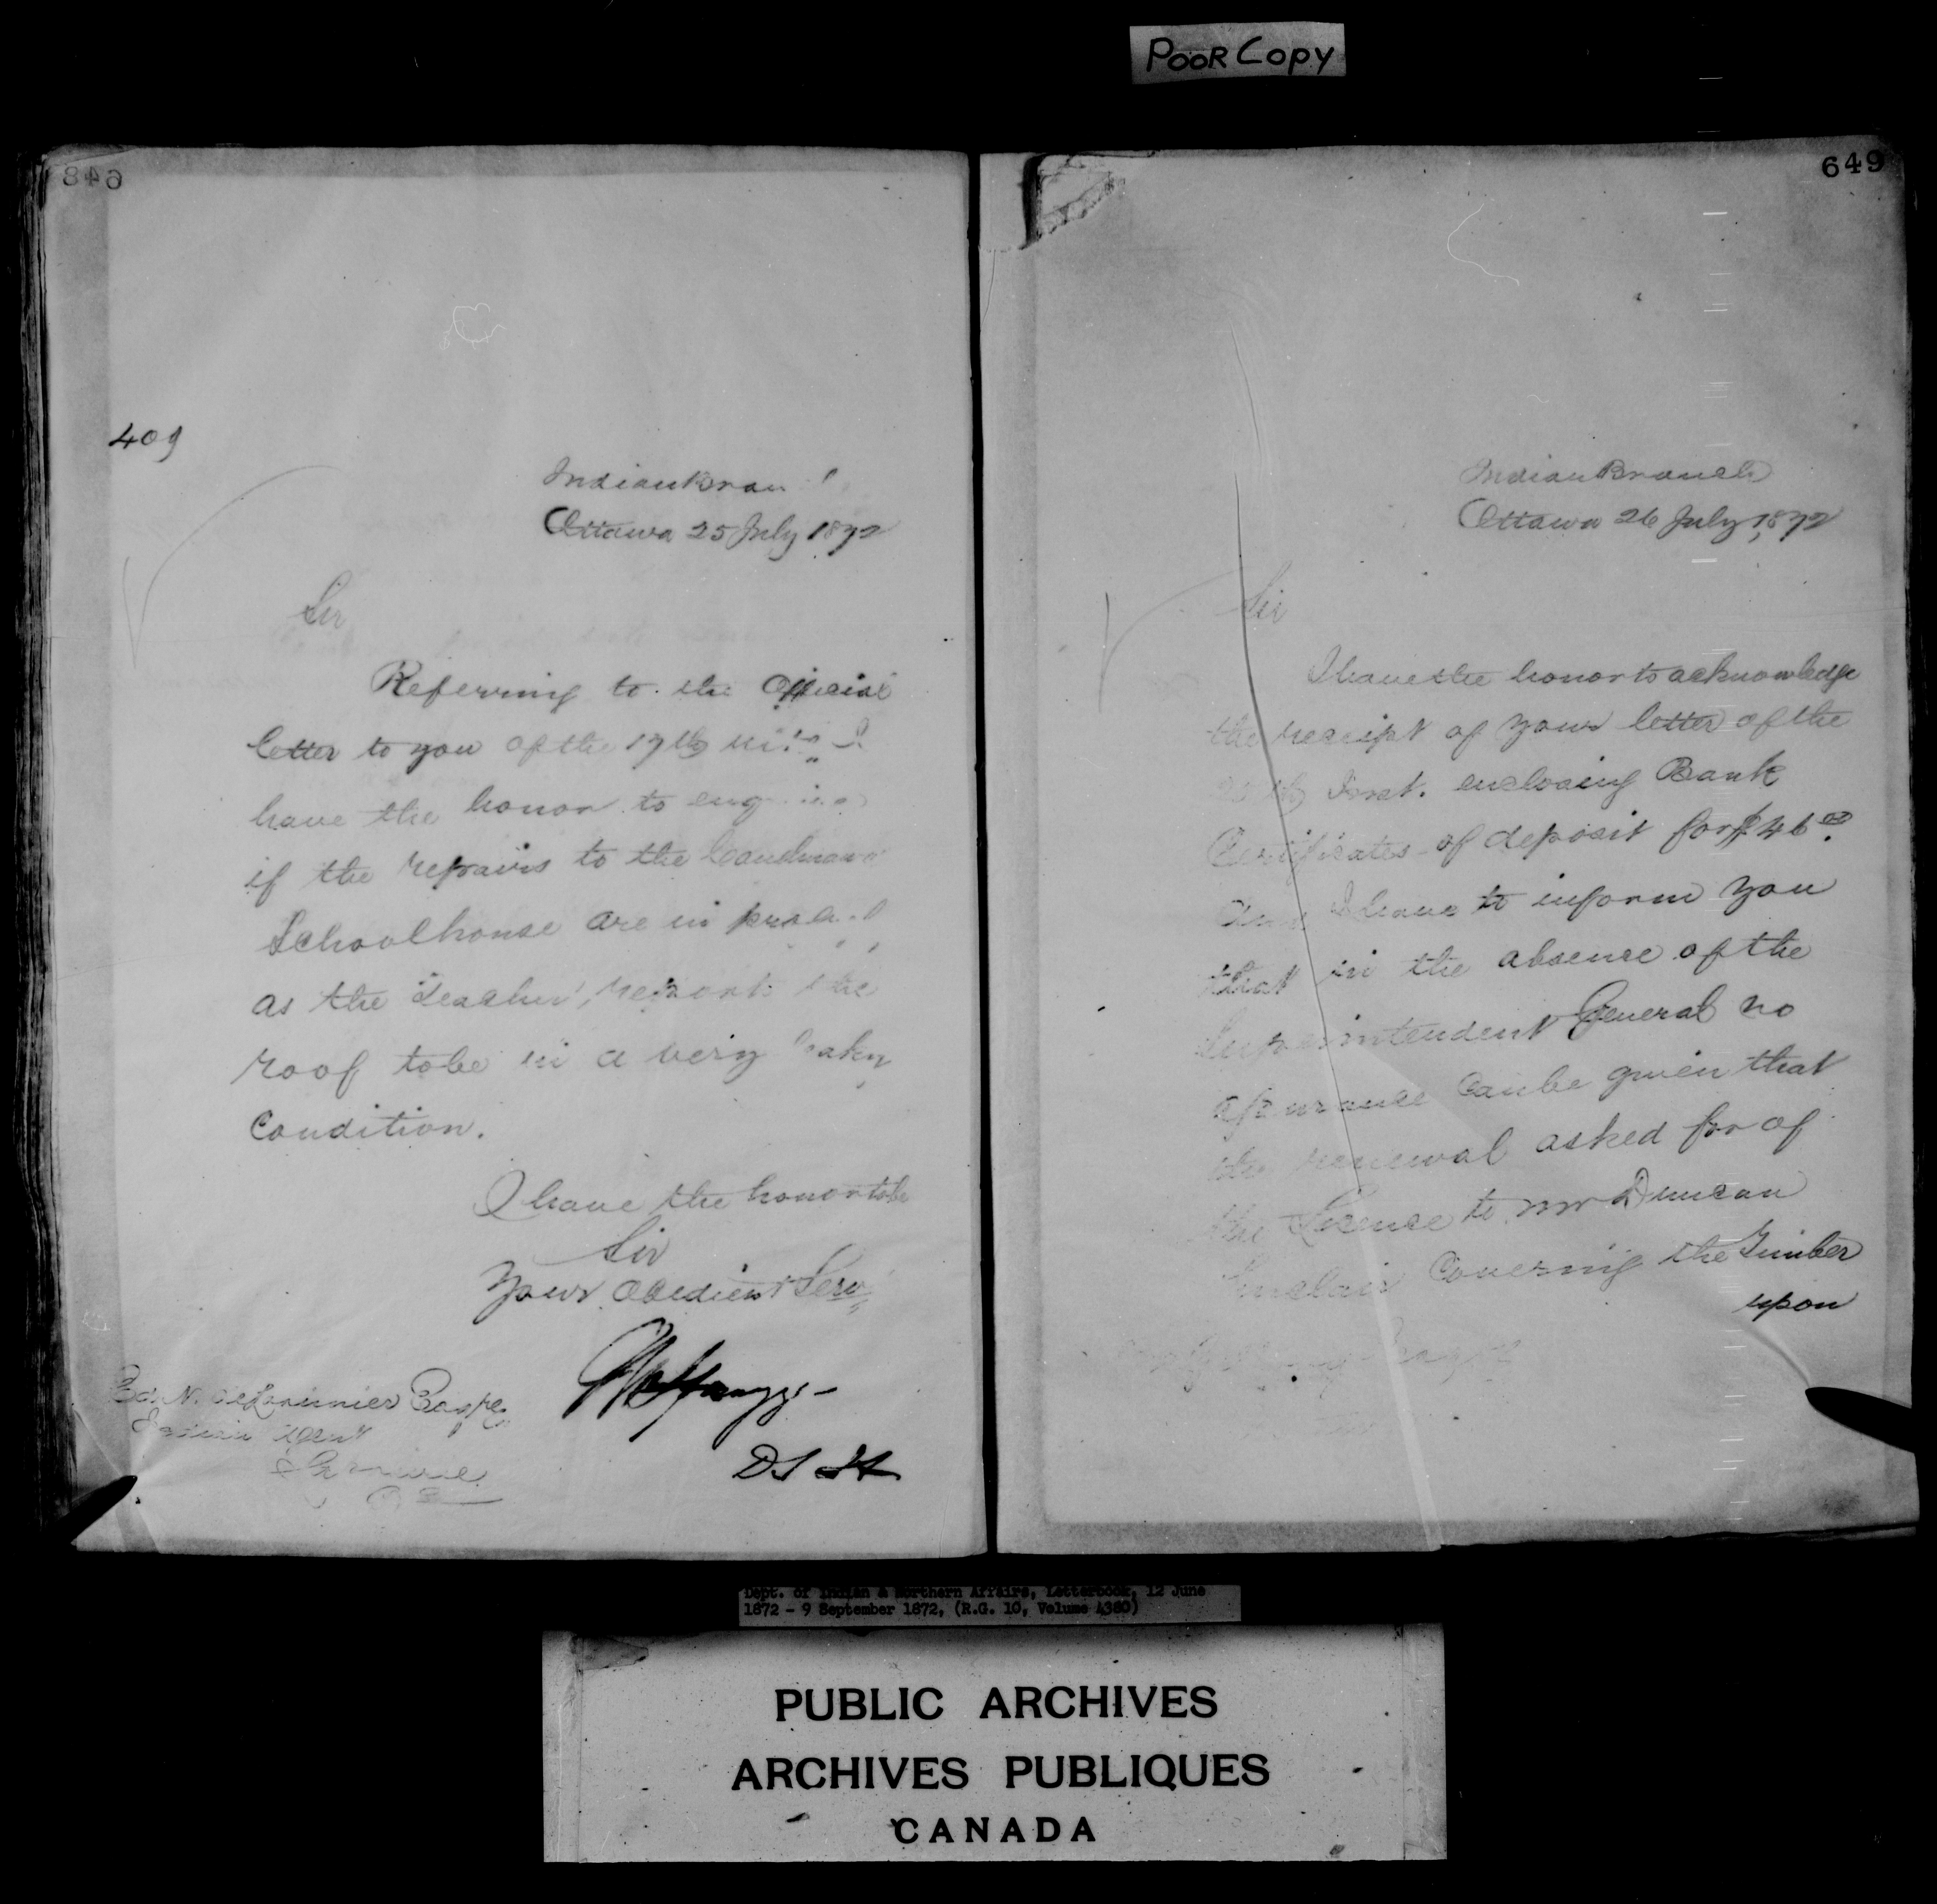 POOR COPY
648
409
Indian Bran
Ottawa 25 July 1872
Sir
Referring to the Official
letter to you of the 17th I
have the honor to
if the repairs to the
Schoolhouse are in
as the Teacher reports the
roof to be in a very leaky
Condition.
I have the honor to be
Sir
Your Obedient Serv
Ed. N. deLorimier Esqre
Indian Agent
649
Indian Branch
Ottawa 26 July 1872
Sir
I have the honor to acknowledge
the receipt of your letter of the
Inst. enclosing Bank
Certificates of deposit for $46 00
I have to inform you
that in the absence of the
Superintendent General no
assurance can be given that
the renewal asked for of
the License to Mr Duncan
Sinclair Covering the Timber
upon
Dept. of Indian & Northern Affairs, Letterbook, 12 June
1872 - 9 September 1872, (R.G. 10, Volume 4380)
PUBLIC ARCHIVES
ARCHIVES PUBLIQUES
CANADA